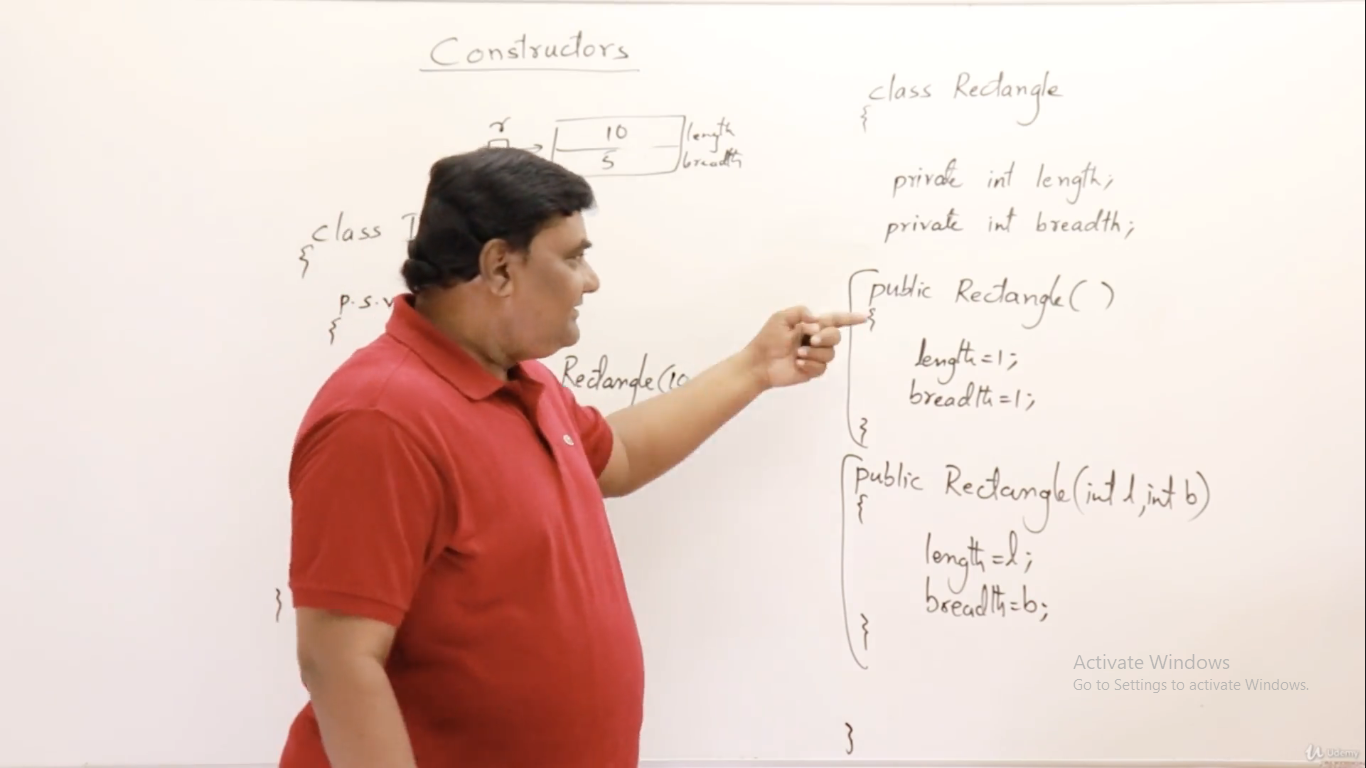 Constructors
r
10
5
length
breadth
class
{
p.s.v
{
Rectangle(10
}
class Rectangle
{
private int length;
private int breadth;
public Rectangle( )
{
length=1;
breadth=1;
}
public Rectangle(int l,int b)
{
length=l;
breadth=b;
}
}
Activate Windows
Go to Settings to activate Windows.
Udemy